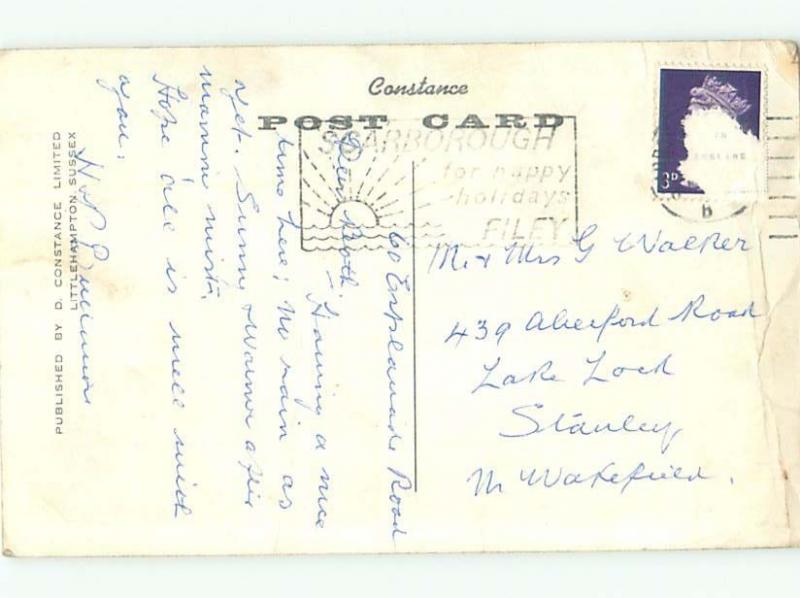 Constance
POST CARD
SCARBOROUGH
for happy
holidays
FILEY
3D
60 Esplanade Road
Dear Both,
Having a nice
time here; No rain as
yet. Sunny & Warm after
morning mists.
Hope all is well with
you.
PUBLISHED BY D. CONSTANCE LIMITED
LITTLEHAMPTON, SUSSEX
Mr & Mrs G Walker
439 Aberford Road
Lake Lock
Stanley
Nr Wakefield.